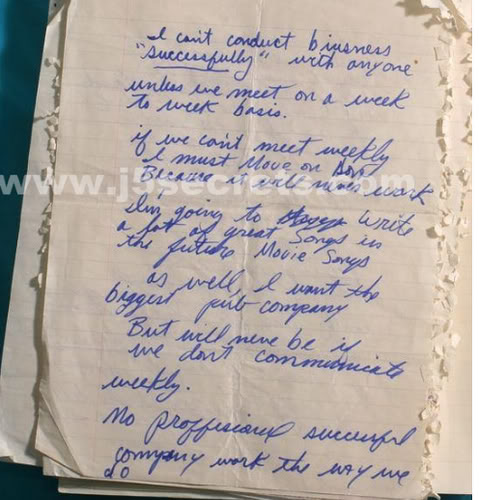 I can't conduct biusness
"successfully" with anyone
unless we meet on a week
to week basis.
if we can't meet weekly
I must Move on
Because it will never work
www.j5secrets.com
I'm going to write
a lot of great Songs in
the future Movie Songs
as well, I want the
biggest pub company
But will never be if
we don't communicate
weekly.
No proffisional succesful
company work the way we
do